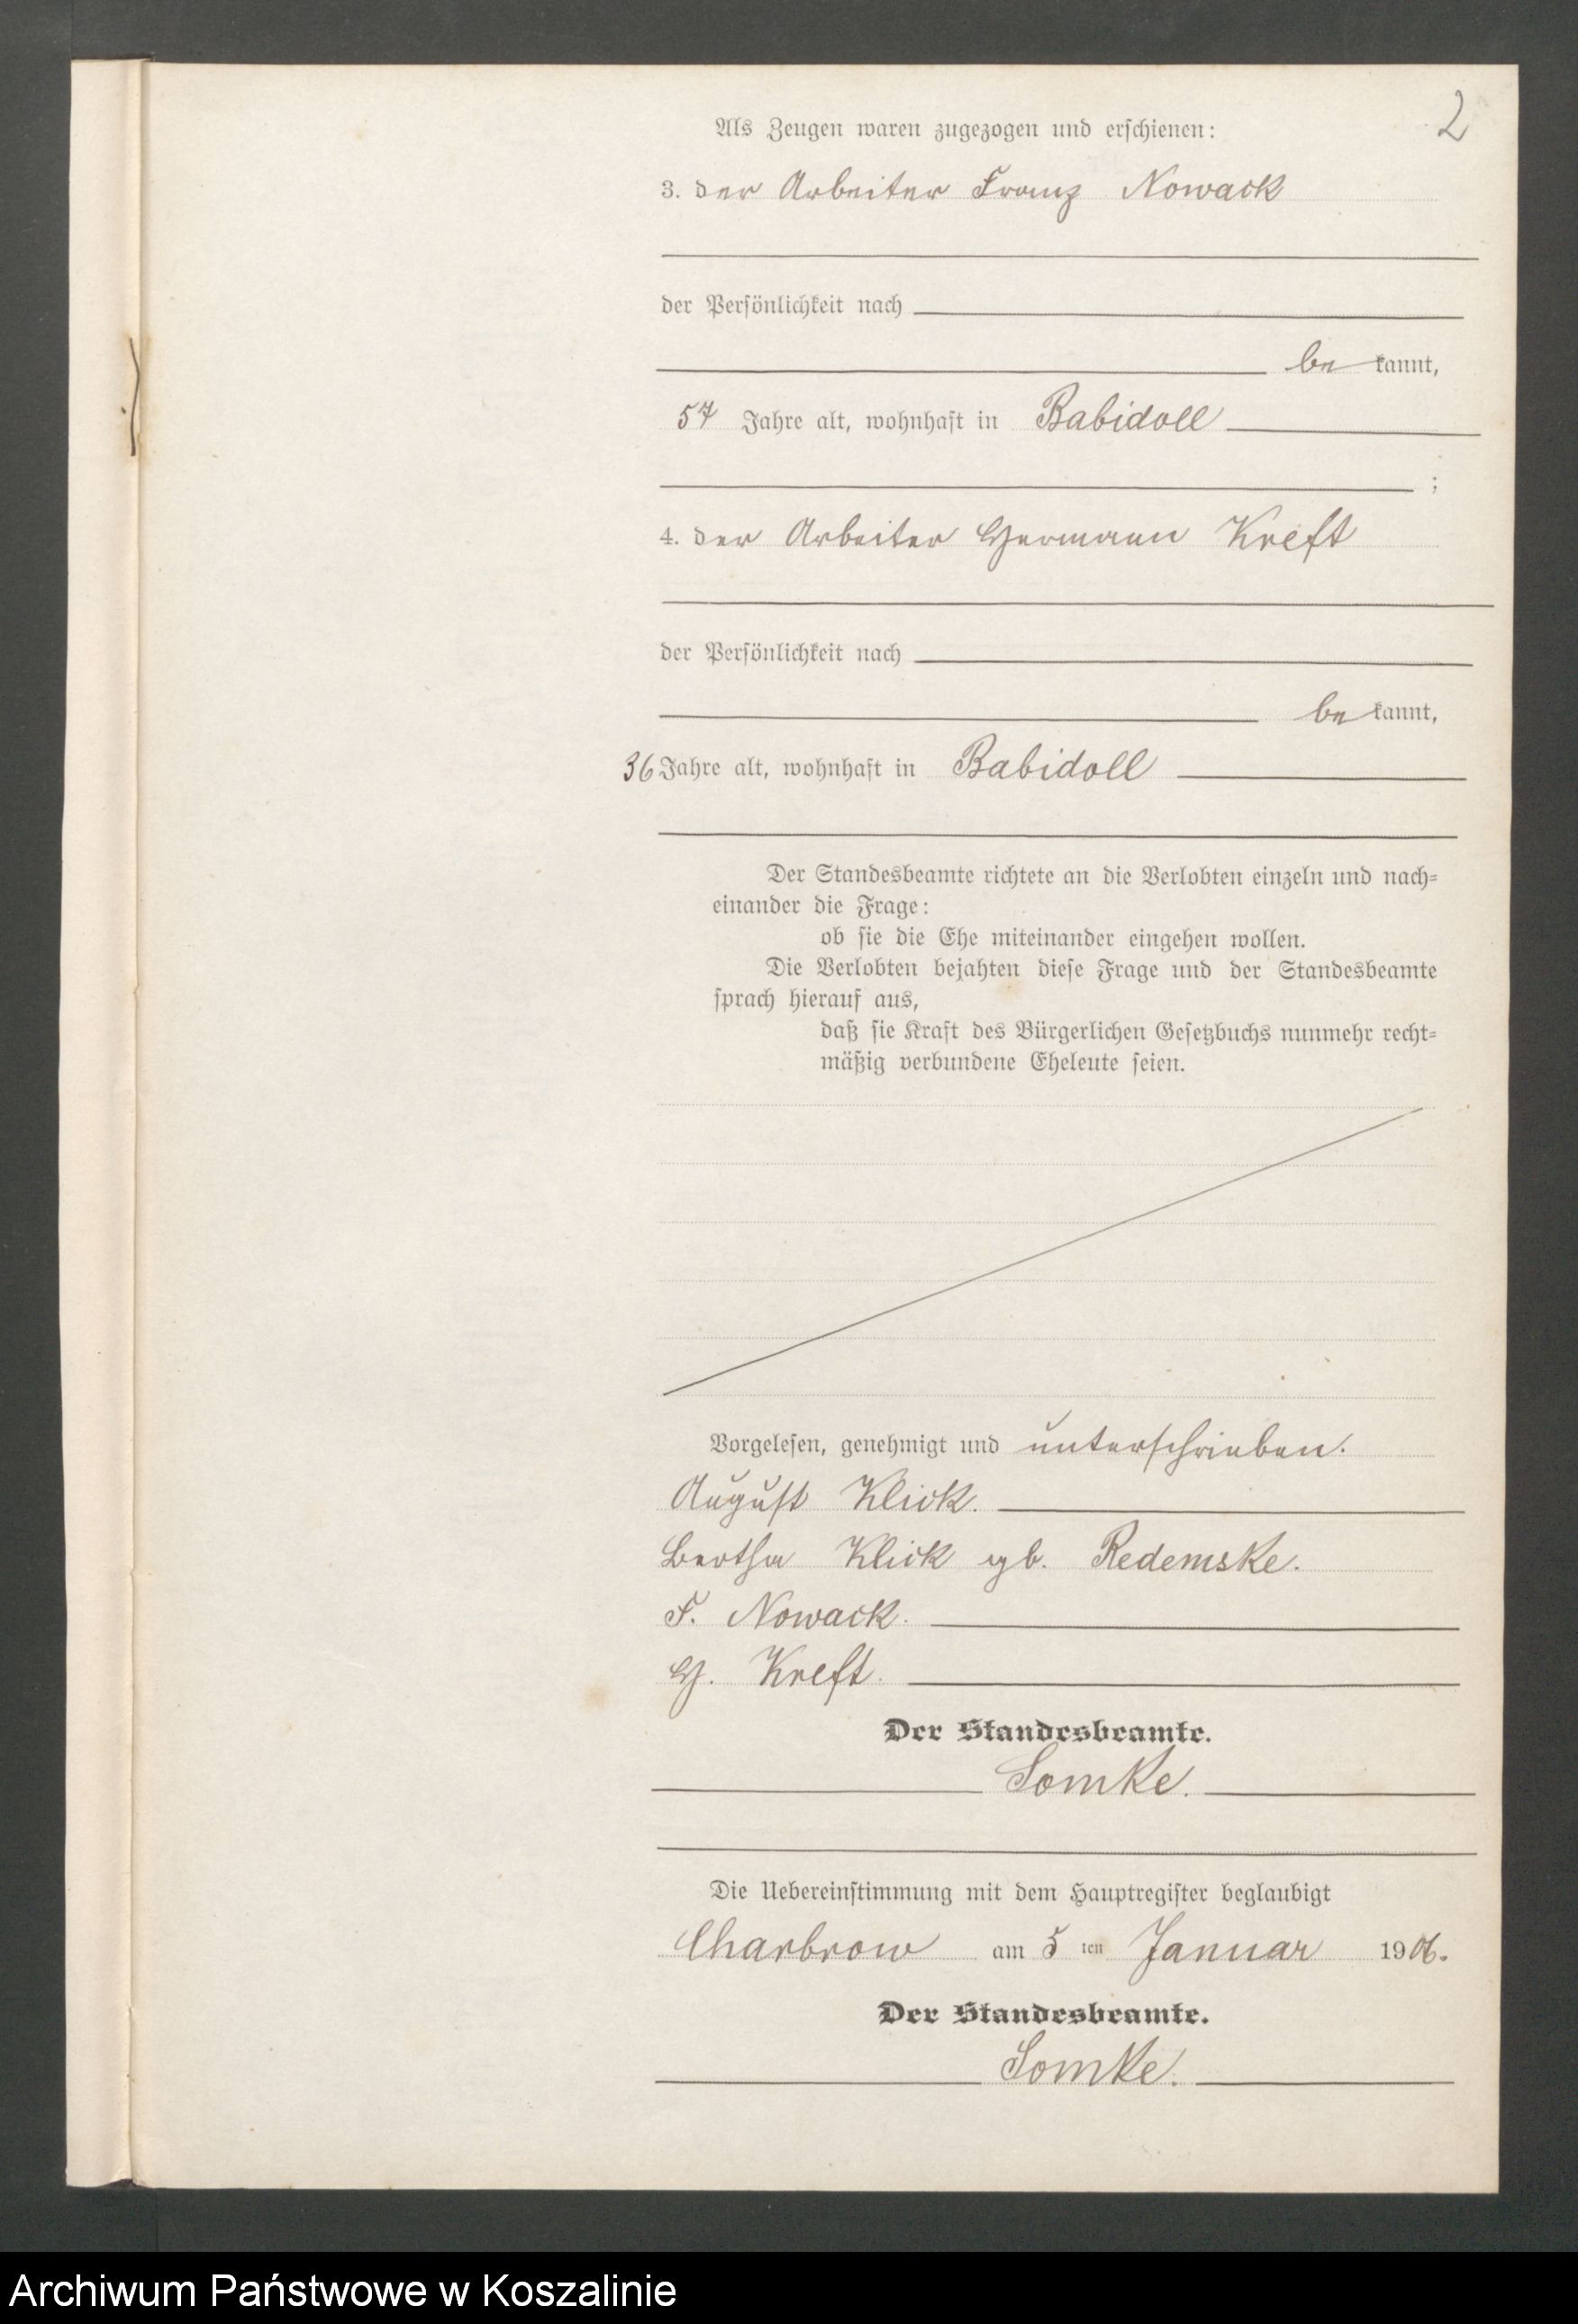 2
Als Zeugen waren zugezogen und erschienen:
3. der Arbeiter Franz Nowack
der Persönlichkeit nach
be kannt,
57 Jahre alt, wohnhaft in Babidoll
;
4. der Arbeiter Hermann Kreft
der Persönlichkeit nach
be kannt,
36 Jahre alt, wohnhaft in Babidoll
Der Standesbeamte richtete an die Verlobten einzeln und nach=
einander die Frage:
ob sie die Ehe miteinander eingehen wollen.
Die Verlobten bejahten diese Frage und der Standesbeamte
sprach hierauf aus,
daß sie Kraft des Bürgerlichen Gesetzbuchs nunmehr recht=
mäßig verbundene Eheleute seien.
Vorgelesen, genehmigt und unterschrieben.
August Klick.
Bertha Klick gb. Redemske.
F. Nowack.
H. Kreft.
Der Standesbeamte.
Somke.
Die Uebereinstimmung mit dem Hauptregister beglaubigt
Charbrow am 5 ten Januar 1906.
Der Standesbeamte.
Somke.
Archiwum Państwowe w Koszalinie